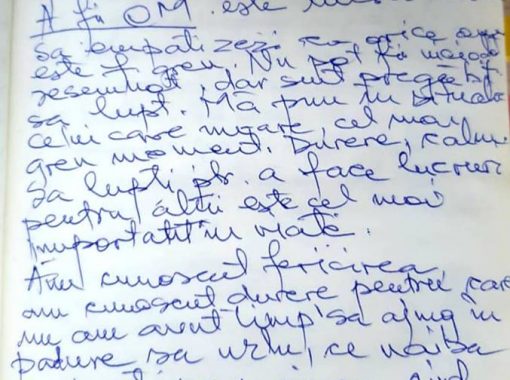 A fi OM este
să empatizezi cu orice
este f. greu. Nu pot fi
resemnat, dar sunt pregătit
să lupt. Mă pun în situația
celui care moare, cel mai
greu moment. Durere, calm
să lupți ptr. a face lucruri
pentru alții este cel mai
important în viață.
Am cunoscut fericirea,
am cunoscut durere pentru care
nu am avut timp să ajung în
pădure să urlu, ce naiba